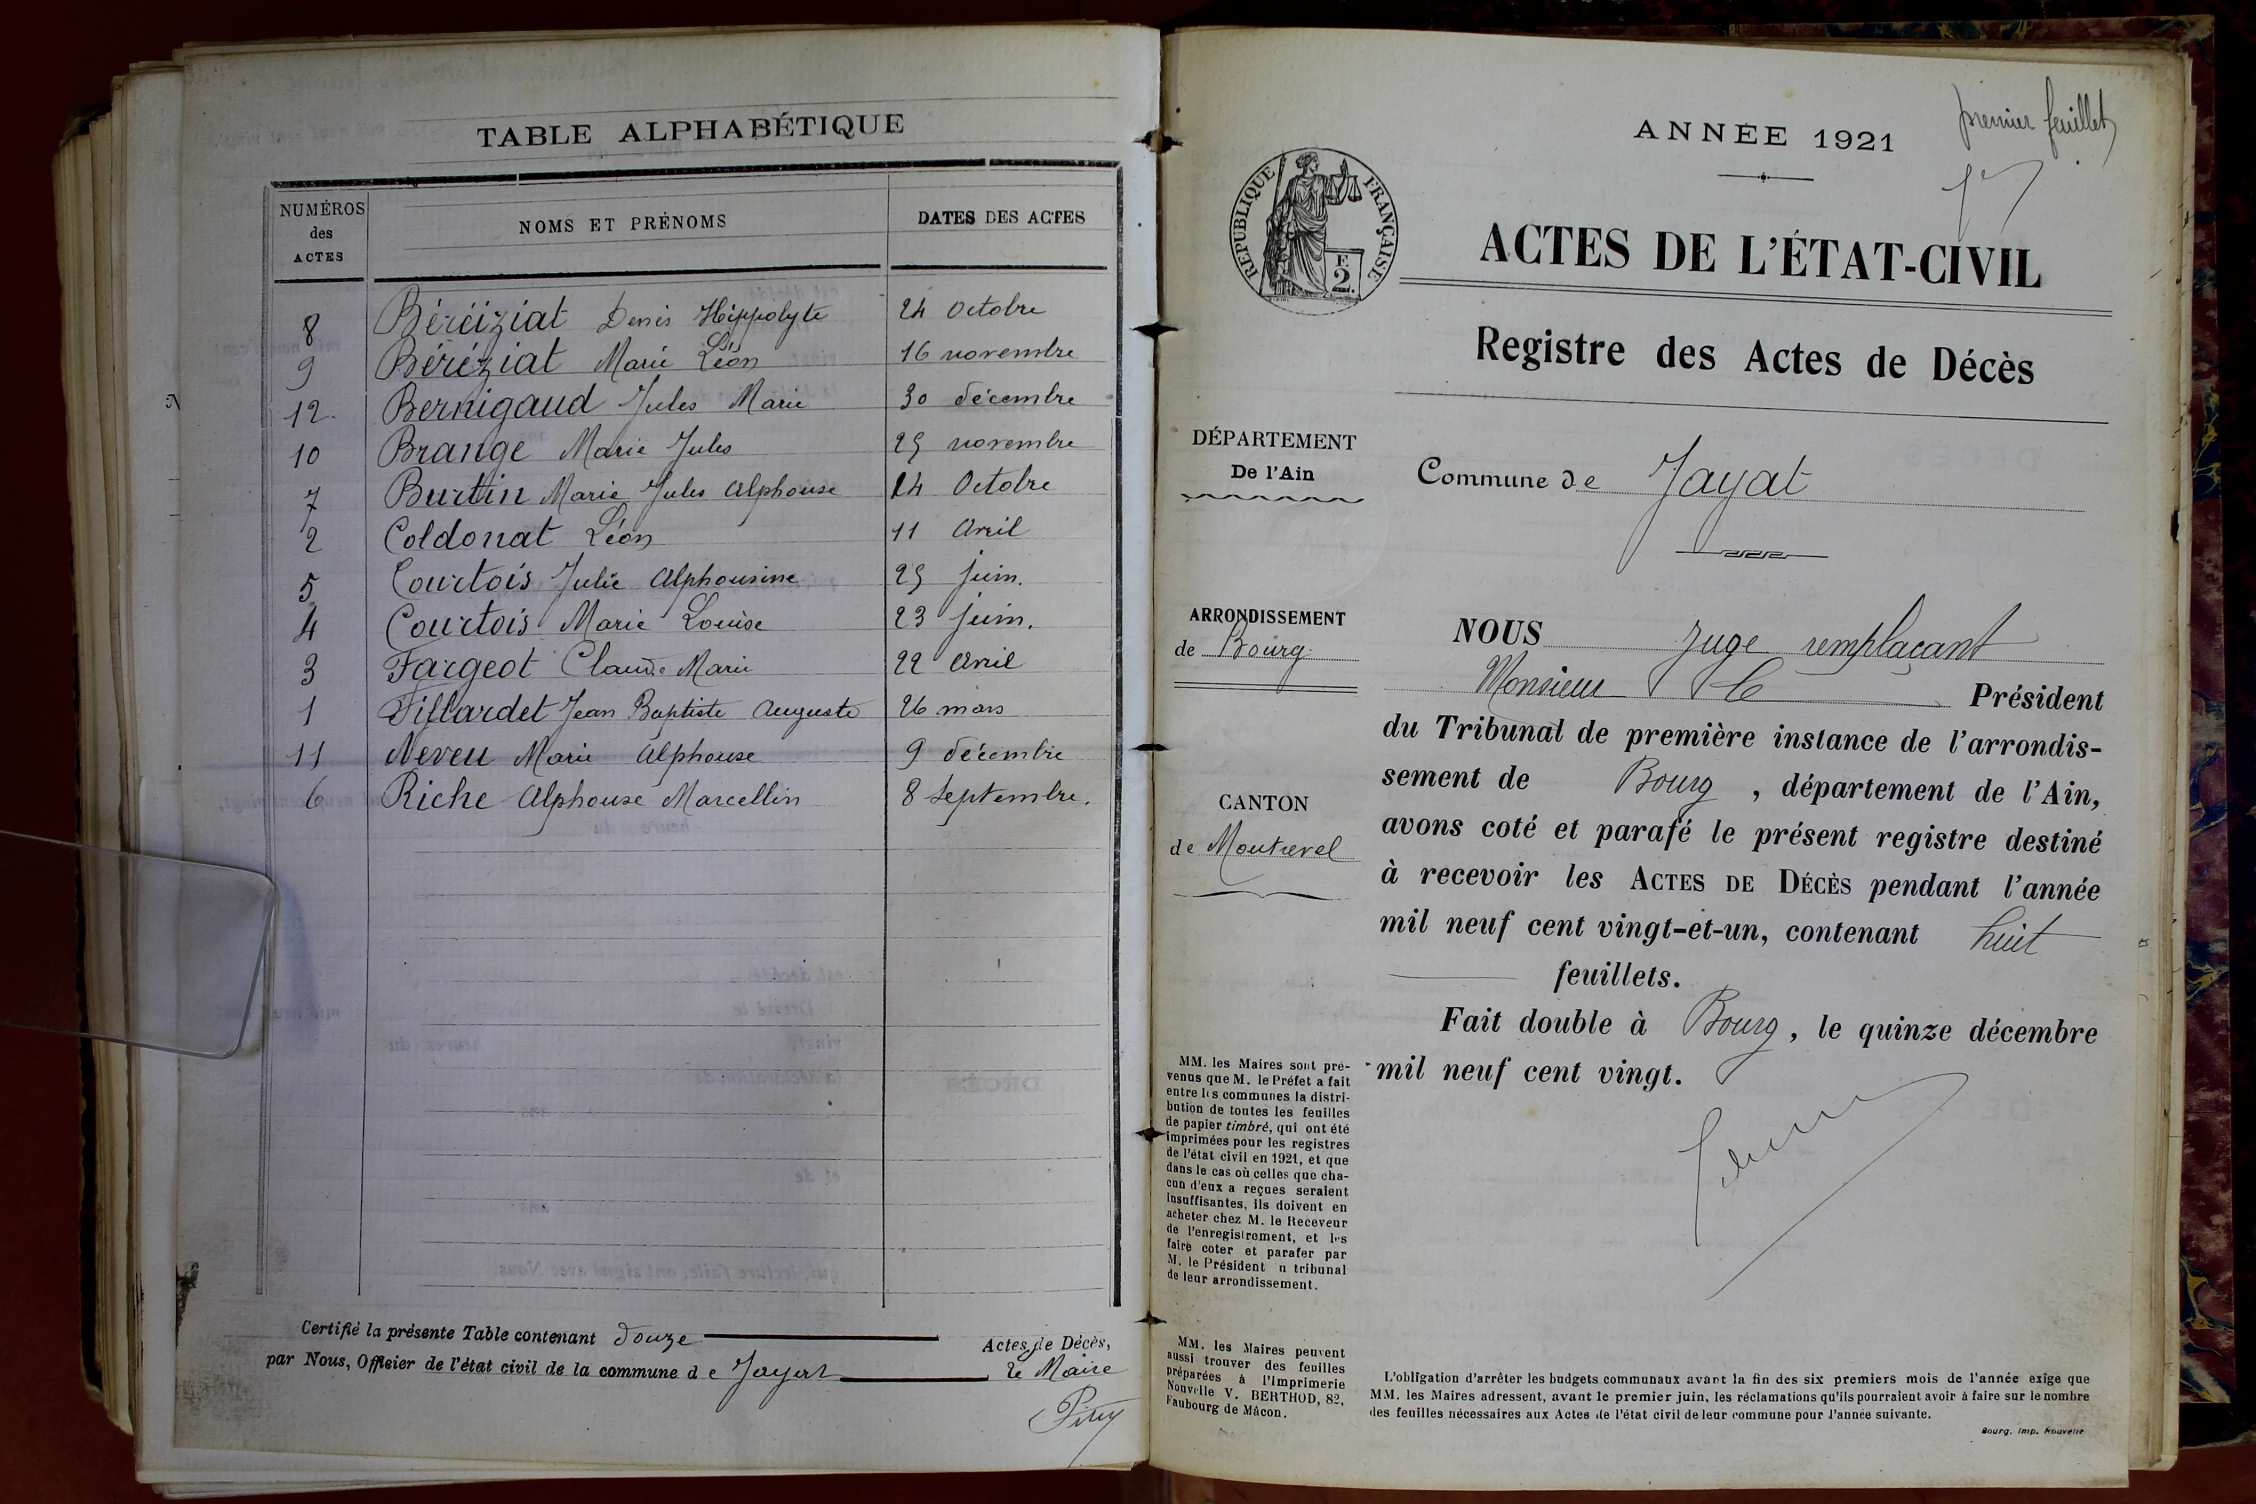 TABLE ALPHABÉTIQUE
NUMÉROS des ACTES
NOMS ET PRÉNOMS
DATES DES ACTES
8 Béréiziat Denis Hippolyte 24 Octobre
9 Béréziat Marie Léon 16 novembre
12 Bernigaud Jules Marie 30 décembre
10 Brange Marie Jules 25 novembre
7 Burtin Marie Jules Alphonse 14 Octobre
2 Coldonat Léon 11 Avril
5 Courtois Julie Alphonsine 25 juin.
4 Courtois Marie Louise 23 juin.
3 Fargeot Claude Marie 22 Avril
1 Fillardet Jean Baptiste Auguste 26 mars
11 Neveu Marie Alphonse 9 décembre
6 Riche Alphonse Marcellin 8 Septembre.
Certifié la présente Table contenant douze Actes de Décès,
par Nous, Officier de l'état civil de la commune de Jayat le Maire
premier feuillet
ANNÉE 1921
RÉPUBLIQUE FRANÇAISE
2 F.
ACTES DE L'ÉTAT-CIVIL
Registre des Actes de Décès
DÉPARTEMENT
De l'Ain
Commune de Jayat
ARRONDISSEMENT
de Bourg
CANTON
de Montrevel
NOUS Juge remplaçant
Monsieur le Président
du Tribunal de première instance de l'arrondis-
sement de Bourg, département de l'Ain,
avons coté et parafé le présent registre destiné
à recevoir les ACTES DE DÉCÈS pendant l'année
mil neuf cent vingt-et-un, contenant huit
feuillets.
Fait double à Bourg, le quinze décembre
mil neuf cent vingt.
MM. les Maires sont pré-
venus que M. le Préfet a fait
entre les communes la distri-
bution de toutes les feuilles
de papier timbré, qui ont été
imprimées pour les registres
de l'état civil en 1921, et que
dans le cas où celles que cha-
cun d'eux a reçues seraient
insuffisantes, ils doivent en
acheter chez M. le Receveur
de l'enregistrement, et les
faire coter et parafer par
M. le Président u tribunal
de leur arrondissement.
MM. les Maires peuvent
aussi trouver des feuilles
préparées à l'Imprimerie
Nouvelle V. BERTHOD, 82,
Faubourg de Mâcon.
L'obligation d'arrêter les budgets communaux avant la fin des six premiers mois de l'année exige que
MM. les Maires adressent, avant le premier juin, les réclamations qu'ils pourraient avoir à faire sur le nombre
des feuilles nécessaires aux Actes de l'état civil de leur commune pour l'année suivante.
Bourg, Imp. Nouvelle